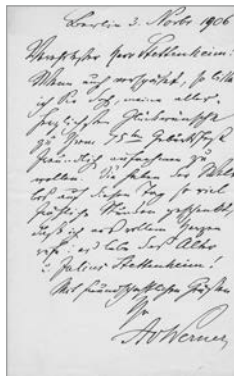 Berlin 3. Novbr 1906
Verehrtester Herr Stettenheim!
Wenn auch verspätet, so bitte
ich Sie doch, meine aller-
herzlichsten Glückwünsche
zu Ihrem 75ten Geburtstage
freundlich aufnehmen zu
wollen. Sie haben der Welt
bis auf diesen Tag so viel
fröhliche Stunden geschenkt,
daß ich aus vollem Herzen
rufe: es lebe das Alter
u. Julius Stettenheim!
Mit freundschaftlichen Grüßen
Ihr
AvWerner